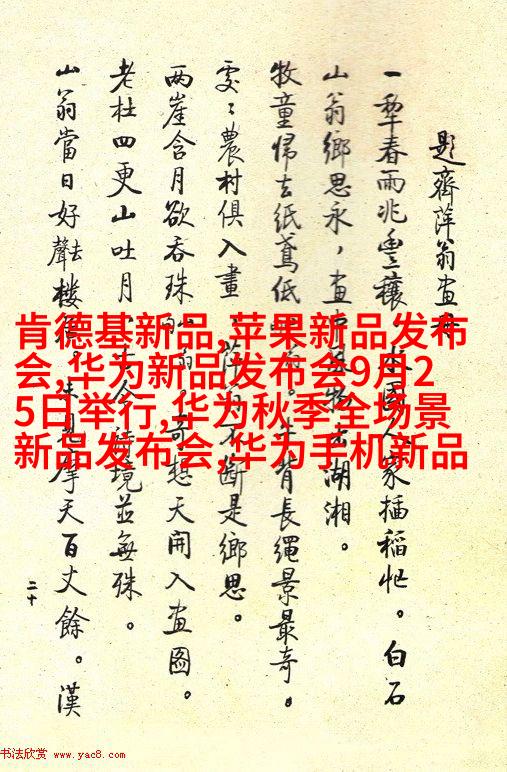 題齊萍翁畫
一犁春雨兆豐穰，水國人家插稻忙。白石
山翁鄉思永，畫中物湖湘。
牧童歸去紙鳶低，牛背長繩景最奇。
處〻農村俱入畫，不斷是鄉思。
兩崖含月欲吞珠，奇想天開入畫圖。
老杜四更山吐月，今詩境並無殊。
山翁當日好去聲樓居。未見摩天百丈餘。漢
二十
肯德基新品,苹果新品发布
会,华为新品发布会9月2
5日举行,华为秋季全场景
新品发布会,华为手机新品
书法欣赏 www.yac8.com